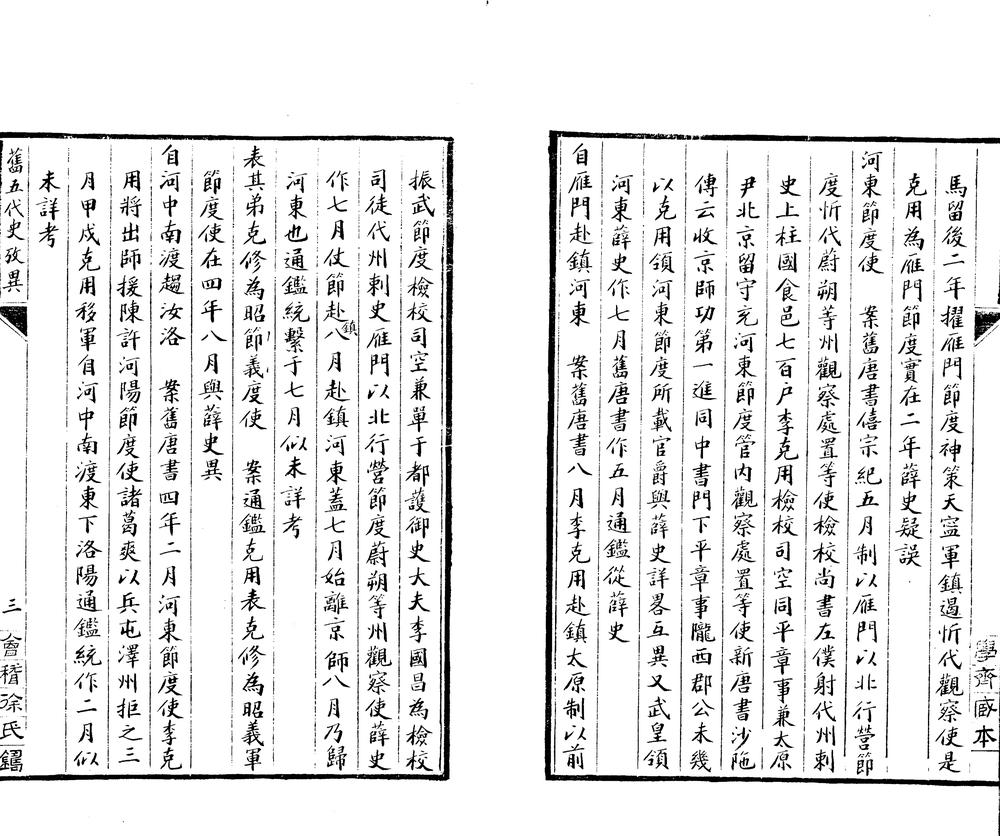 馬留後二年擢雁門節度神策天寧軍鎮遏忻代觀察使是
克用為雁門節度實在二年薛史疑誤
河東節度使　案舊唐書僖宗紀五月制以雁門以北行營節
度忻代蔚朔等州觀察處置等使檢校尚書左僕射代州刺
史上柱國食邑七百戶李克用檢校司空同平章事兼太原
尹北京留守充河東節度管內觀察處置等使新唐書沙陁
傳云收京師功第一進同中書門下平章事隴西郡公未幾
以克用領河東節度所載官爵與薛史詳畧互異又武皇領
河東薛史作七月舊唐書作五月通鑑從薛史
自雁門赴鎮河東　案舊唐書八月李克用赴鎮太原制以前
學齋
本
振武節度檢校司空兼單于都護御史大夫李國昌為檢校
司徒代州刺史雁門以北行營節度蔚朔等州觀察使薛史
作七月仗節赴鎮八月赴鎮河東蓋七月始離京師八月乃歸
河東也通鑑統繫于七月似未詳考
表其弟克修為昭節義度使　案通鑑克用表克修為昭義軍
節度使在四年八月與薛史異
自河中南渡趨汝洛　案舊唐書四年二月河東節度使李克
用將出師援陳許河陽節度使諸葛爽以兵屯澤州拒之三
月甲戍克用移軍自河中南渡東下洛陽通鑑統作二月似
未詳考
舊五代史攷異
三
會稽徐氏鑄